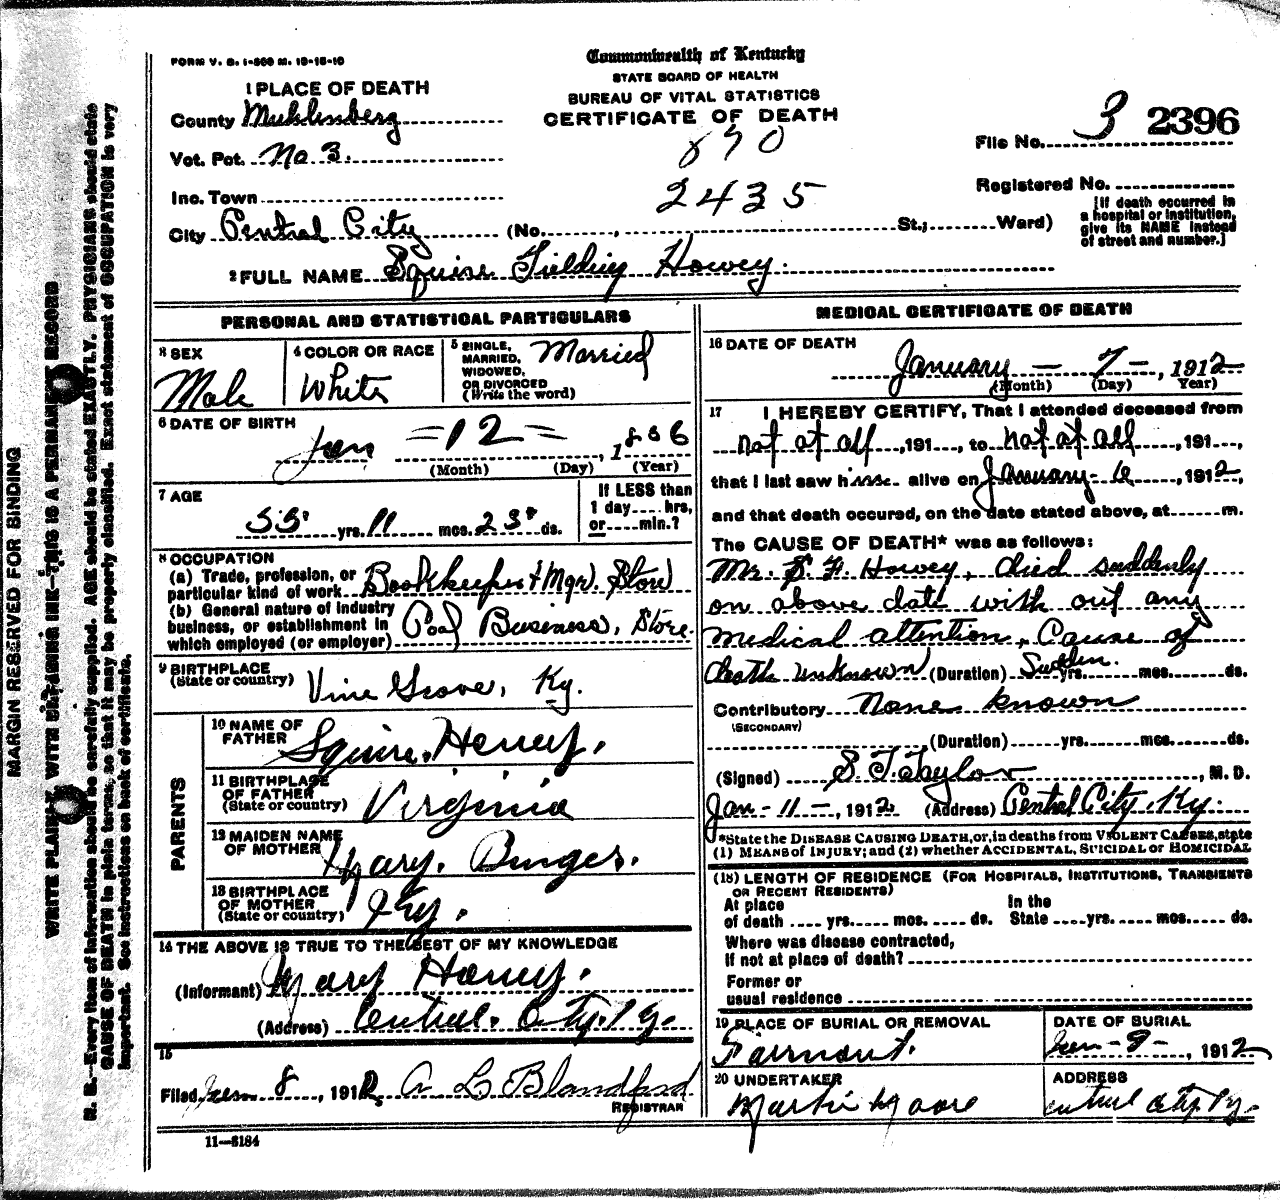 FORM V. S. 1-500 M. 12-15-10
Commonwealth of Kentucky
STATE BOARD OF HEALTH
BUREAU OF VITAL STATISTICS
CERTIFICATE OF DEATH
1 PLACE OF DEATH
County Muhlenberg
Vot. Pct. No 3.
Inc. Town
City Central City (No. , St.; Ward)
2435
File No. 3 2396
Registered No.
[If death occurred in
a hospital or institution,
give its NAME instead
of street and number.]
2 FULL NAME Squire Fielding Hovey.
PERSONAL AND STATISTICAL PARTICULARS
3 SEX
Male
4 COLOR OR RACE
White
5 SINGLE,
MARRIED,
WIDOWED,
OR DIVORCED
(Write the word)
Married
6 DATE OF BIRTH
Jan =12= , 1856
(Month) (Day) (Year)
7 AGE
55 yrs. 11 mos. 25 ds.
If LESS than
1 day....hrs,
or....min.?
8 OCCUPATION
(a) Trade, profession, or
particular kind of work Bookkeeper & Mgr. Store
(b) General nature of industry
business, or establishment in
which employed (or employer) Coal Business, Store.
9 BIRTHPLACE
(State or country) Vine Grove, Ky.
PARENTS
10 NAME OF
FATHER Squire. Hovey.
11 BIRTHPLACE
OF FATHER
(State or country) Virginia
12 MAIDEN NAME
OF MOTHER Mary.
13 BIRTHPLACE
OF MOTHER
(State or country) Ky.
14 THE ABOVE IS TRUE TO THE BEST OF MY KNOWLEDGE
(Informant) Mary Hovey.
(Address) Central. City. Ky.
15
Filed Jan 8, 1912, A L Blandford
REGISTRAR
11—3184
MEDICAL CERTIFICATE OF DEATH
16 DATE OF DEATH
January - 7 - , 1912
(Month) (Day) Year)
17 I HEREBY CERTIFY, That I attended deceased from
not at all, 191..., to not at all, 191...,
that I last saw him alive on January - 6, 1912,
and that death occured, on the date stated above, at......m.
The CAUSE OF DEATH* was as follows:
Mr. S. F. Hovey, died suddenly
on above date with out any
medical attention, Cause of
death unknown (Duration) Sudden. yrs. mos. ds.
Contributory None known
(SECONDARY)
(Duration) yrs. mos. ds.
(Signed) S. T. Taylor, M. D.
Jan - 11 -, 1912 (Address) Central City, Ky.
*State the DISEASE CAUSING DEATH, or, in deaths from VIOLENT CAUSES, state
(1) MEANS of INJURY; and (2) whether ACCIDENTAL, SUICIDAL or HOMICIDAL
(18) LENGTH OF RESIDENCE (FOR HOSPITALS, INSTITUTIONS, TRANSIENTS
OR RECENT RESIDENTS)
At place In the
of death .... yrs. .... mos. .... ds. State .... yrs. .... mos. .... ds.
Where was disease contracted,
if not at place of death?
Former or
usual residence
19 PLACE OF BURIAL OR REMOVAL
Fairmount.
DATE OF BURIAL
Jan - 9 - , 1912
20 UNDERTAKER
Martin Moore
ADDRESS
Central City Ky.
MARGIN RESERVED FOR BINDING
WRITE PLAINLY, WITH UNFADING INK—THIS IS A PERMANENT RECORD
N. B.—Every item of information should be carefully supplied. AGE should be stated EXACTLY. PHYSICIANS should state
CAUSE OF DEATH in plain terms, so that it may be properly classified. Exact statement of OCCUPATION is very
important. See instructions on back of certificate.